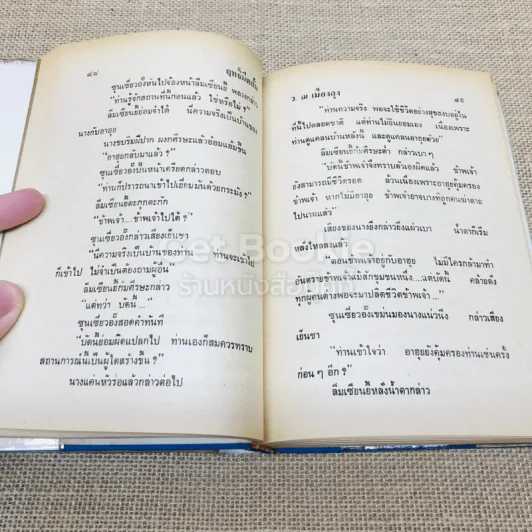 ๘๘
ฤทธิ์มีดสั้น
ซุนเซี่ยวอั้งหันไปจ้องหน้าลิ้มเซียนยี้ พลางกล่าว
"ท่านรู้จักสถานที่นี้ก่อนแล้ว ใช่หรือไม่ ?"
ลิ้มเซียนยี้ย่อมจำได้ นี่ความจริงเป็นบ้านของ
นางกับอาฮุย
นางขบริมฝีปาก ผงกศีรษะแล้วย้อนแย้มยิ้น
"อาฮุยกลับมาแล้ว ?"
ซุนเซี่ยวอั้งปั้นหน้าเครียดกล่าวตอบ
"ท่านก็ปรารถนาเข้าไปเยี่ยมมันด้วยกระมัง ?"
ลิ้มเซียนยี้ตะกุกตะกัก
"ข้าพเจ้า....ข้าพเจ้าไปได้ ?"
ซุนเซี่ยวอั้งกล่าวเสียงเย็นชา
"นี่ความจริงเป็นบ้านของท่าน ท่านจะเข้าไป
ก็เข้าไป ไม่จำเป็นต้องถามผู้อื่น
ลิ้มเซียนยี้ก้มศีรษะกล่าว
"แต่ทว่า บัดนี้...
ซุนเซี่ยวอั้งสอดคำทันที
"บัดนี้ย่อมผิดแปลกไป ท่านเองก็สมควรทราบ
สถานการณ์นี้เป็นผู้ใดสร้างขึ้น ?"
นางแค่นหัวร่อแล้วกล่าวต่อไป
ว. ณ เมืองลุง
๘๙
"ท่านความจริง พอจะใช้ชีวิตอย่างสุขสงบอยู่ใน
ที่นี้ไปตลอดชาติ แต่ท่านไม่ยินยอมเอง เนื่องเพราะ
ท่านดูแคลนบ้านหลังนี้ และดูแคลนอาฮุยด้วย"
ลิ้มเซียนยี้ก้มศีรษะต่ำ กล่าวเบาๆ
"บัดนี้ข้าพเจ้าจึงทราบตัวเองผิดแล้ว ข้าพเจ้า
ยังสามารถมีชีวิตรอด ล้วนเนื่องเพราะอาฮุยคุ้มครอง
ข้าพเจ้า หากไม่มีอาฮุย ข้าพเจ้าอาจบางทีถูกคนฆ่าตาย
ไปนานแล้ว"
เสียงของนางยิ่งกล่าวยิ่งแผ่วเบา น้ำตาก็เริ่ม
หลั่งไหลลงแล้ว
"ตอนข้าพเจ้าอยู่กับอาฮุย ไม่มีใครกล้ามาทำ
อันตรายข้าพเจ้าแม้สักขุมขนหนึ่ง....แต่บัดนี้ คล้ายดัง
ทุกผู้คนต่างพอจะมาปลิดชีวิตข้าพเจ้า...."
ซุนเซี่ยวอั้งเขม้นมองนางแน่วนิ่ง กล่าวเสียง
เย็นชา
"ท่านเข้าใจว่า อาฮุยยังคุ้มครองท่านเช่นครั้ง
ก่อน ๆ อีก ?"
ลิ้มเซียนยี้หลั่งน้ำตากล่าว
Get Bookie
ร้านหนังสือมีตึก